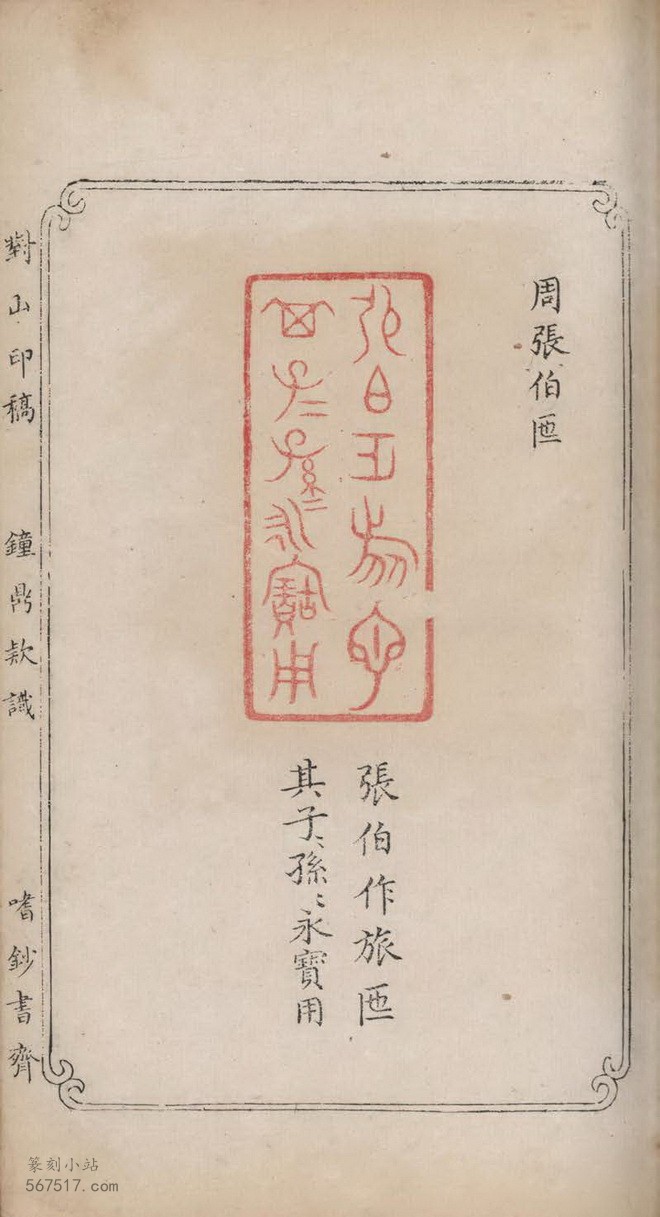 周張伯匜
張伯作旅匜
其子〻孫〻永寶用
對山印稿 鐘鼎款識 嗜鈔書齋
篆刻小站
567517.com